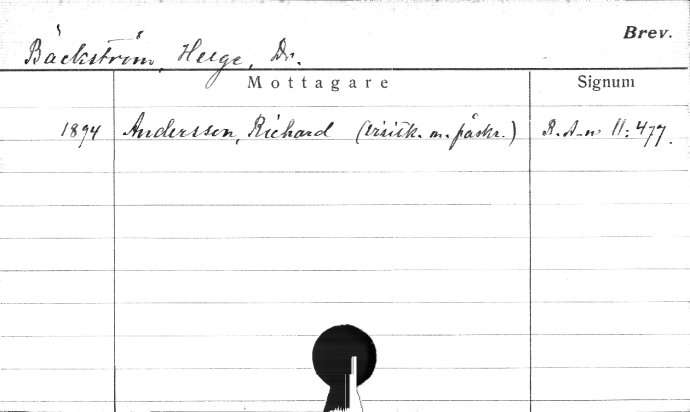 Brev.
Bäckström, Helge, Dr.
Mottagare Signum
1894 Andersson, Richard (visitk. m. påskr.) R. A-n II: 477.